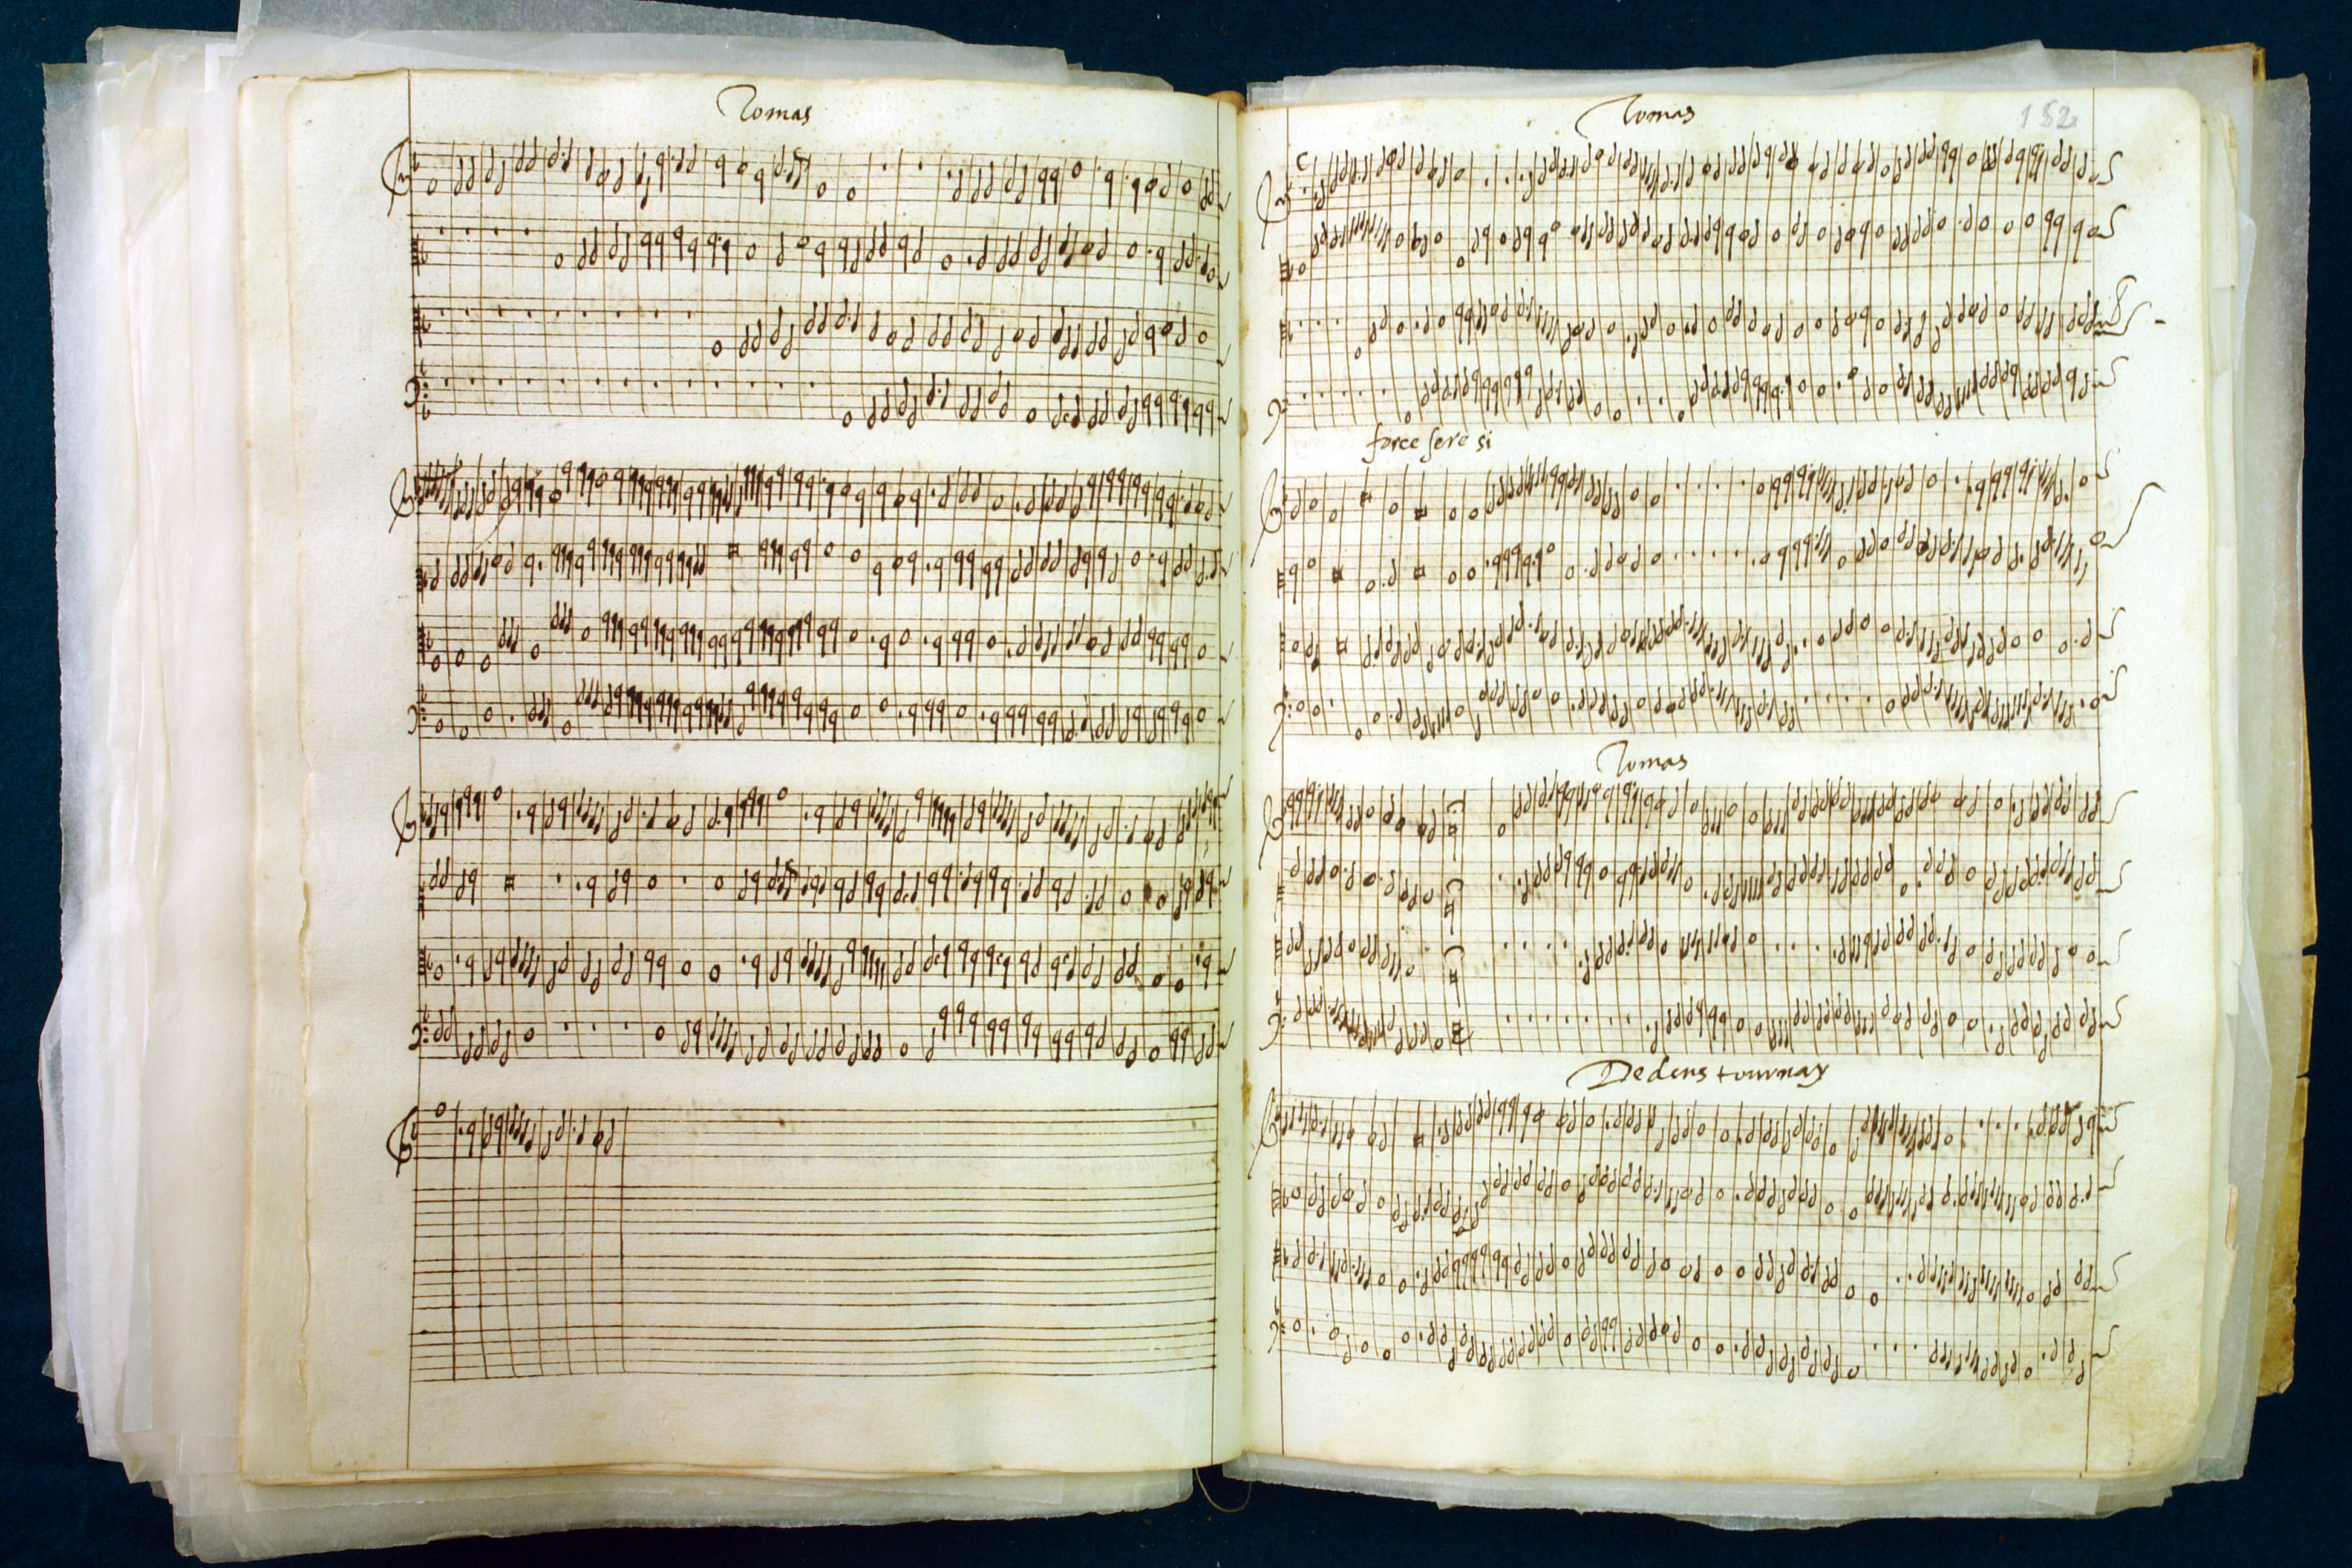 Tomas
Tomas
182
force sere si
Tomas
Dedens tournay